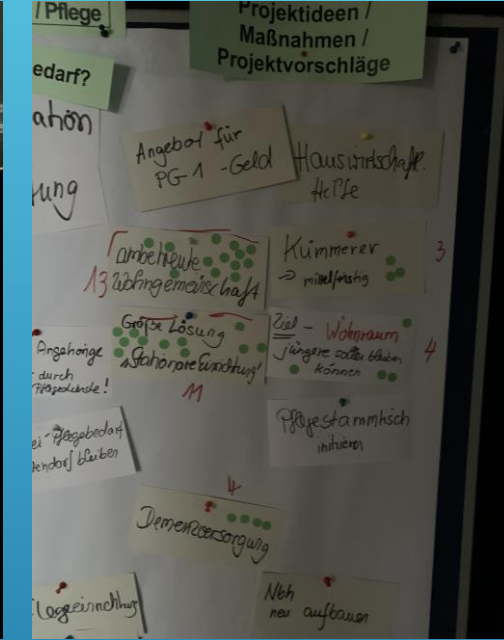 / Pflege
edarf?
Projektideen /
Maßnahmen /
Projektvorschläge
ahon
ung
Angebot für
PG-1 - Geld
Hauswirtschaft.
Helfe
ambetreute
13 Wohngemeinschaft
Kümmerer
→ mittelfristig
3
Große Lösung
"Stationäre Einrichtung"
11
Ziel - Wohnraum
jüngere sollen bleiben
können
4
Angehörige
durch
Pflegedienste!
Pflegestammtisch
initiieren
ei Pflegebedarf
endorf bleiben
4
Demenzversorgung
legeeinrichtung
Nbh
neu aufbauen